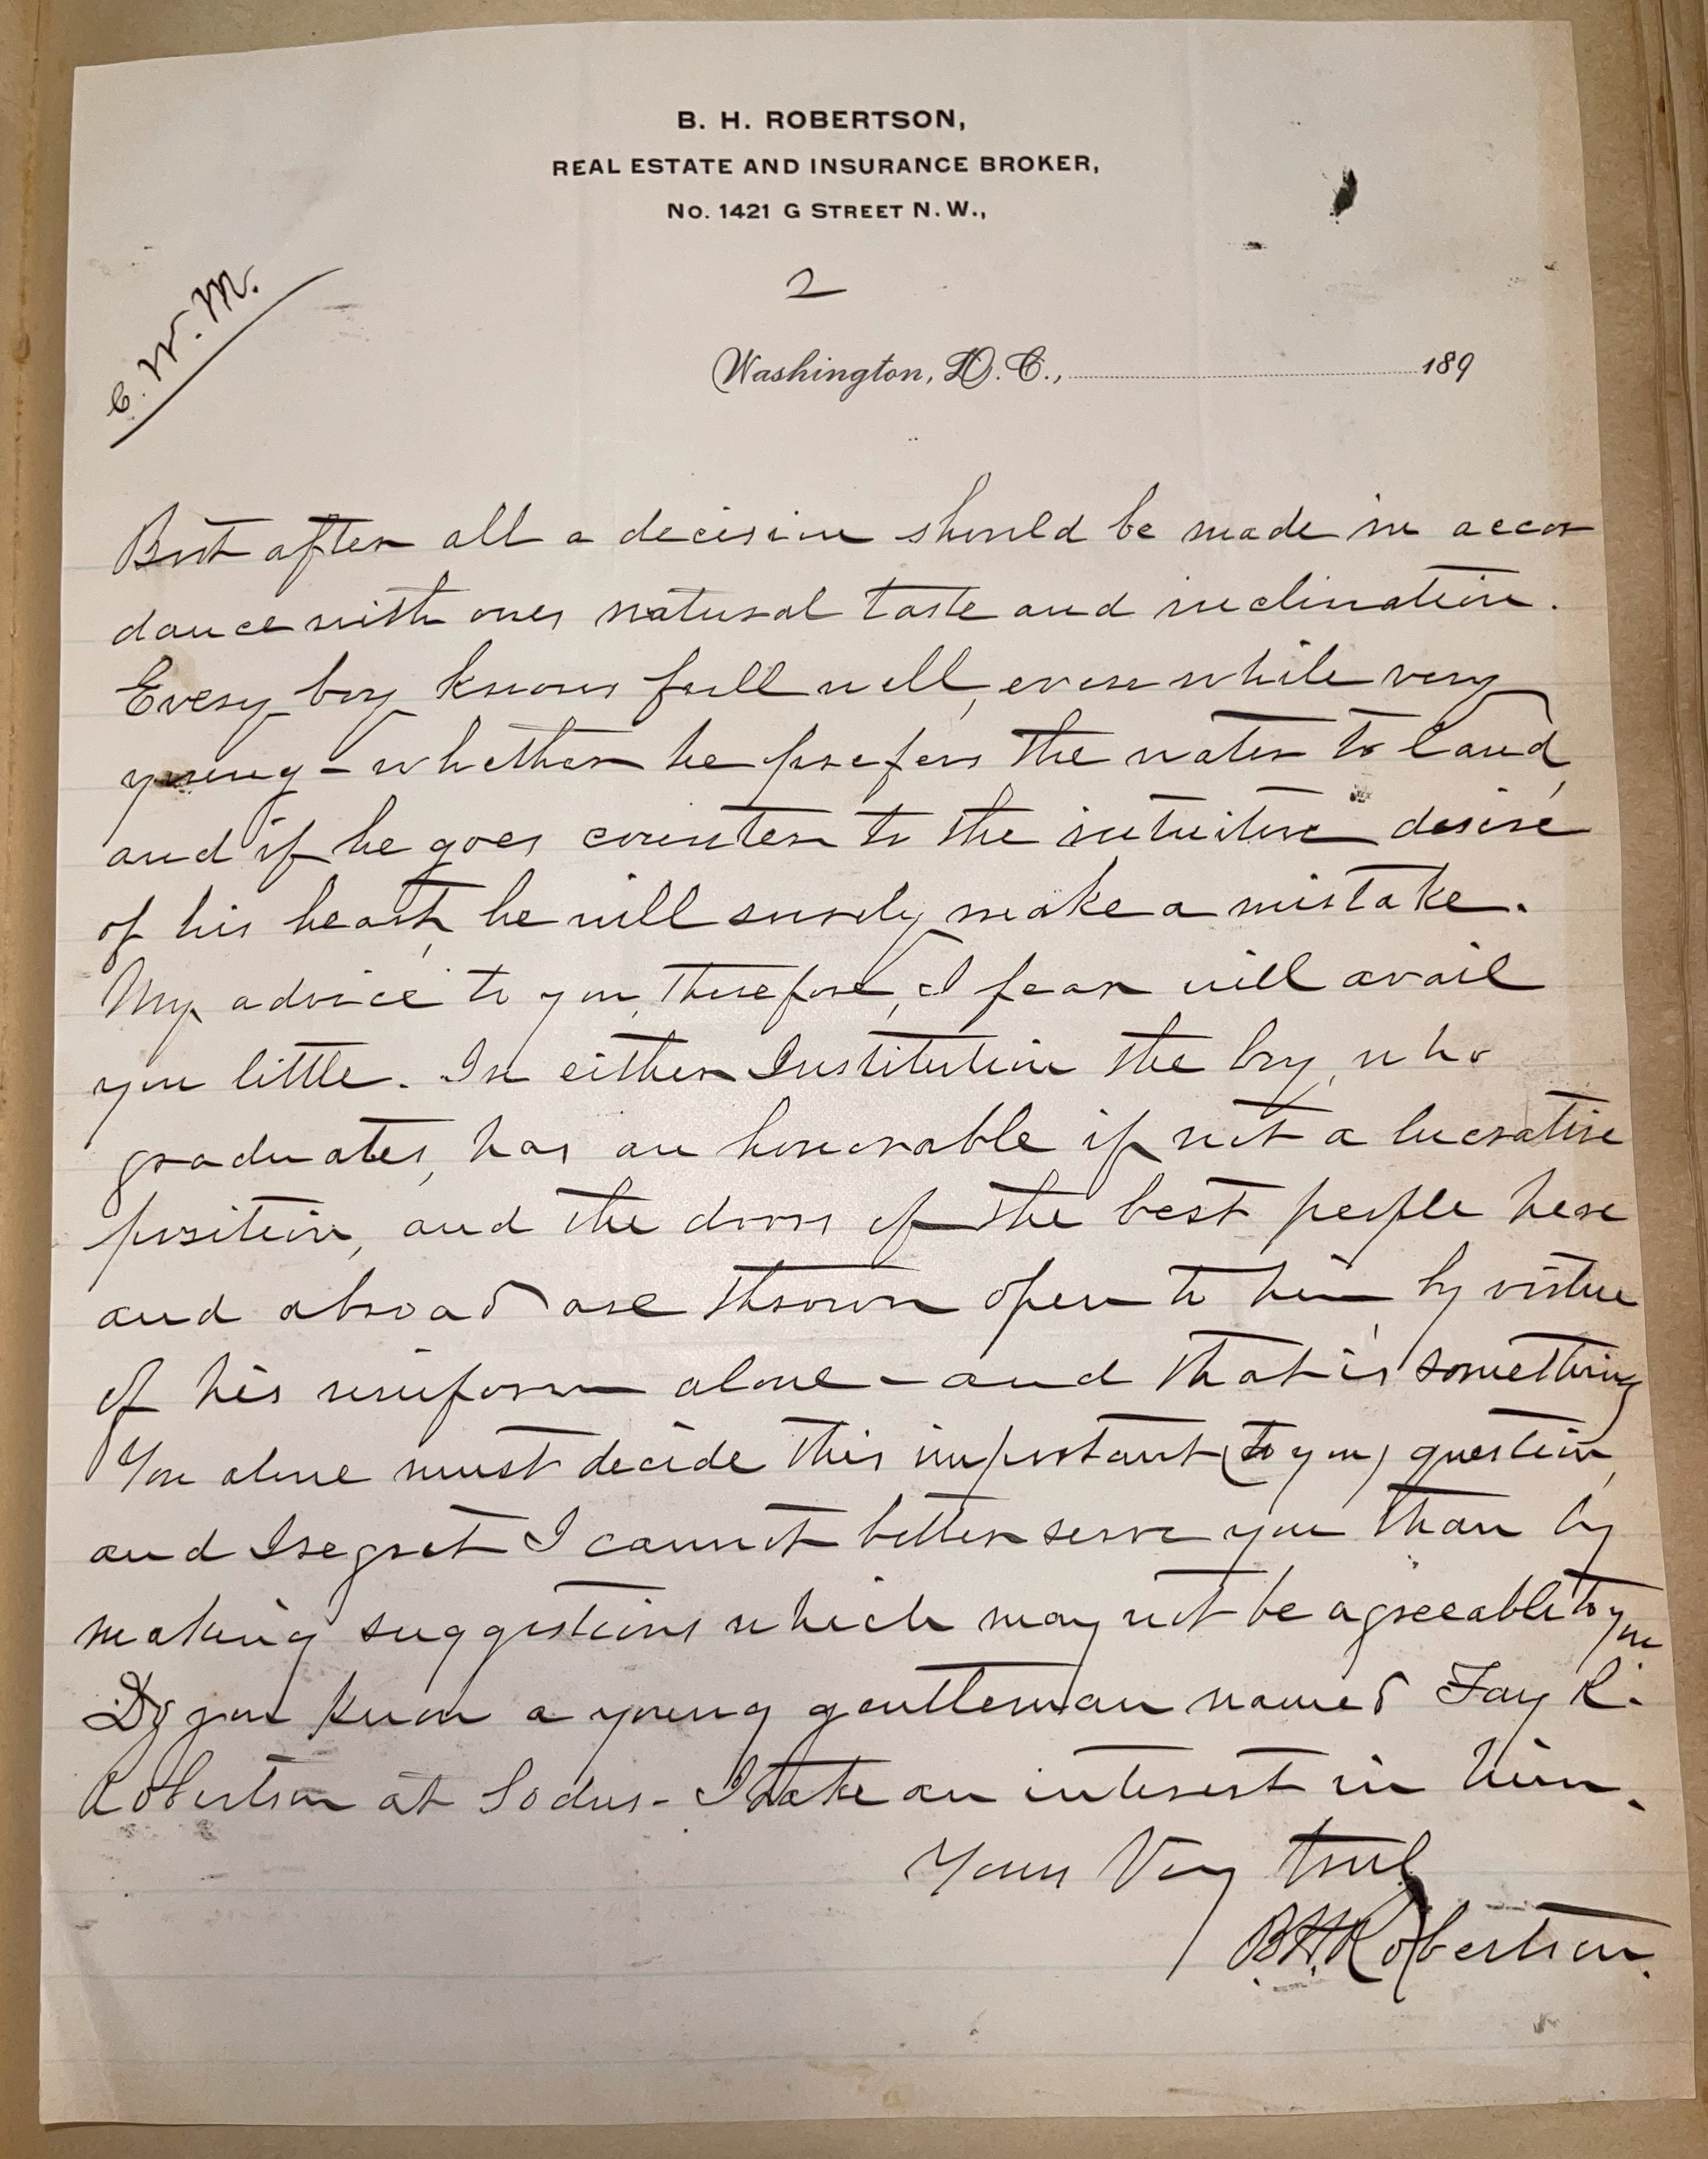 B. H. ROBERTSON,
REAL ESTATE AND INSURANCE BROKER,
No. 1421 G STREET N. W.,
2
C. W. M.
Washington, D. C., 189
But after all a decision should be made in accor
dance with ones natural taste and inclination.
Every boy knows full well, even while very
young - whether he prefers the water to land,
and if he goes counter to the intuitive desire
of his heart, he will surely make a mistake.
My advice to you, therefore, I fear will avail
you little. In either Institution the boy, who
graduates, has an honorable if not a lucrative
position, and the doors of the best people here
and abroad are thrown open to him, by virtue
of his uniform alone - and that is something
You alone must decide this important (to you) question,
and I regret I cannot better serve you than by
making suggestions which may not be agreeable to you
Do you know a young gentleman named Fay R.
Robertson at Sodus - I take an interest in him.
Yours Very truly
B.H. Robertson.